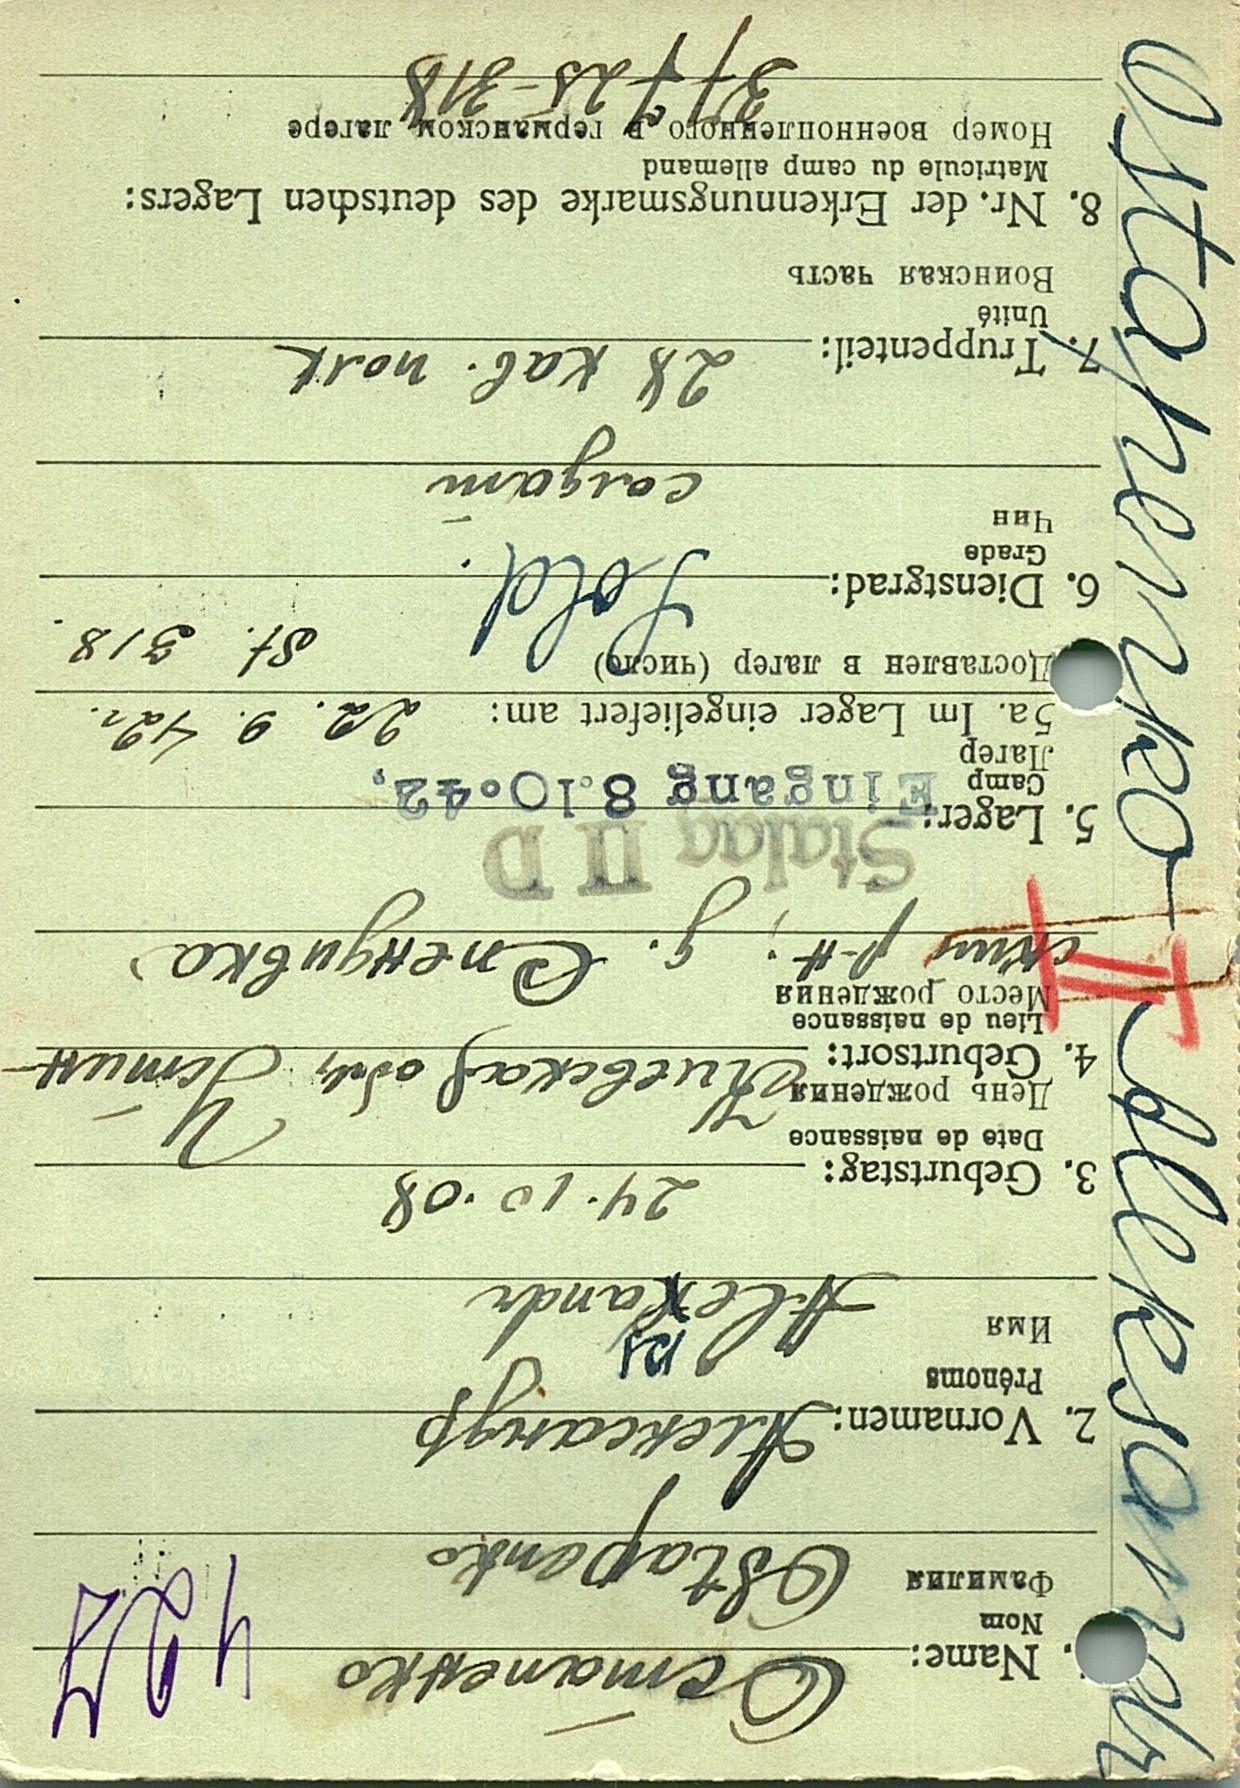 427
1. Name: Остапенко
Nom
Фамилия Ostapenko
2. Vornamen: Александр
Prénoms
Имя Alexandr
ks
3. Geburtstag: 24.10.08
Date de naissance
День рождения
4. Geburtsort: Киевская обл, Устин-
Lieu de naissance
Место рождения
ский р-н, д.
5. Lager: Stalag II D
Camp Eingang 8.10.42.
Лагер
5a. Im Lager eingeliefert am: 22. 9. 42 г.
Доставлен в лагер (число) St. 318.
6. Dienstgrad: Sold.
Grade
Чин
солдат
7. Truppenteil: 28 кав. полк
Unité
Воинская часть
8. Nr. der Erkennungsmarke des deutschen Lagers:
Matricule du camp allemand
Номер военнопленного в германском лагере
-318
Ostapenko Aleksandr
II